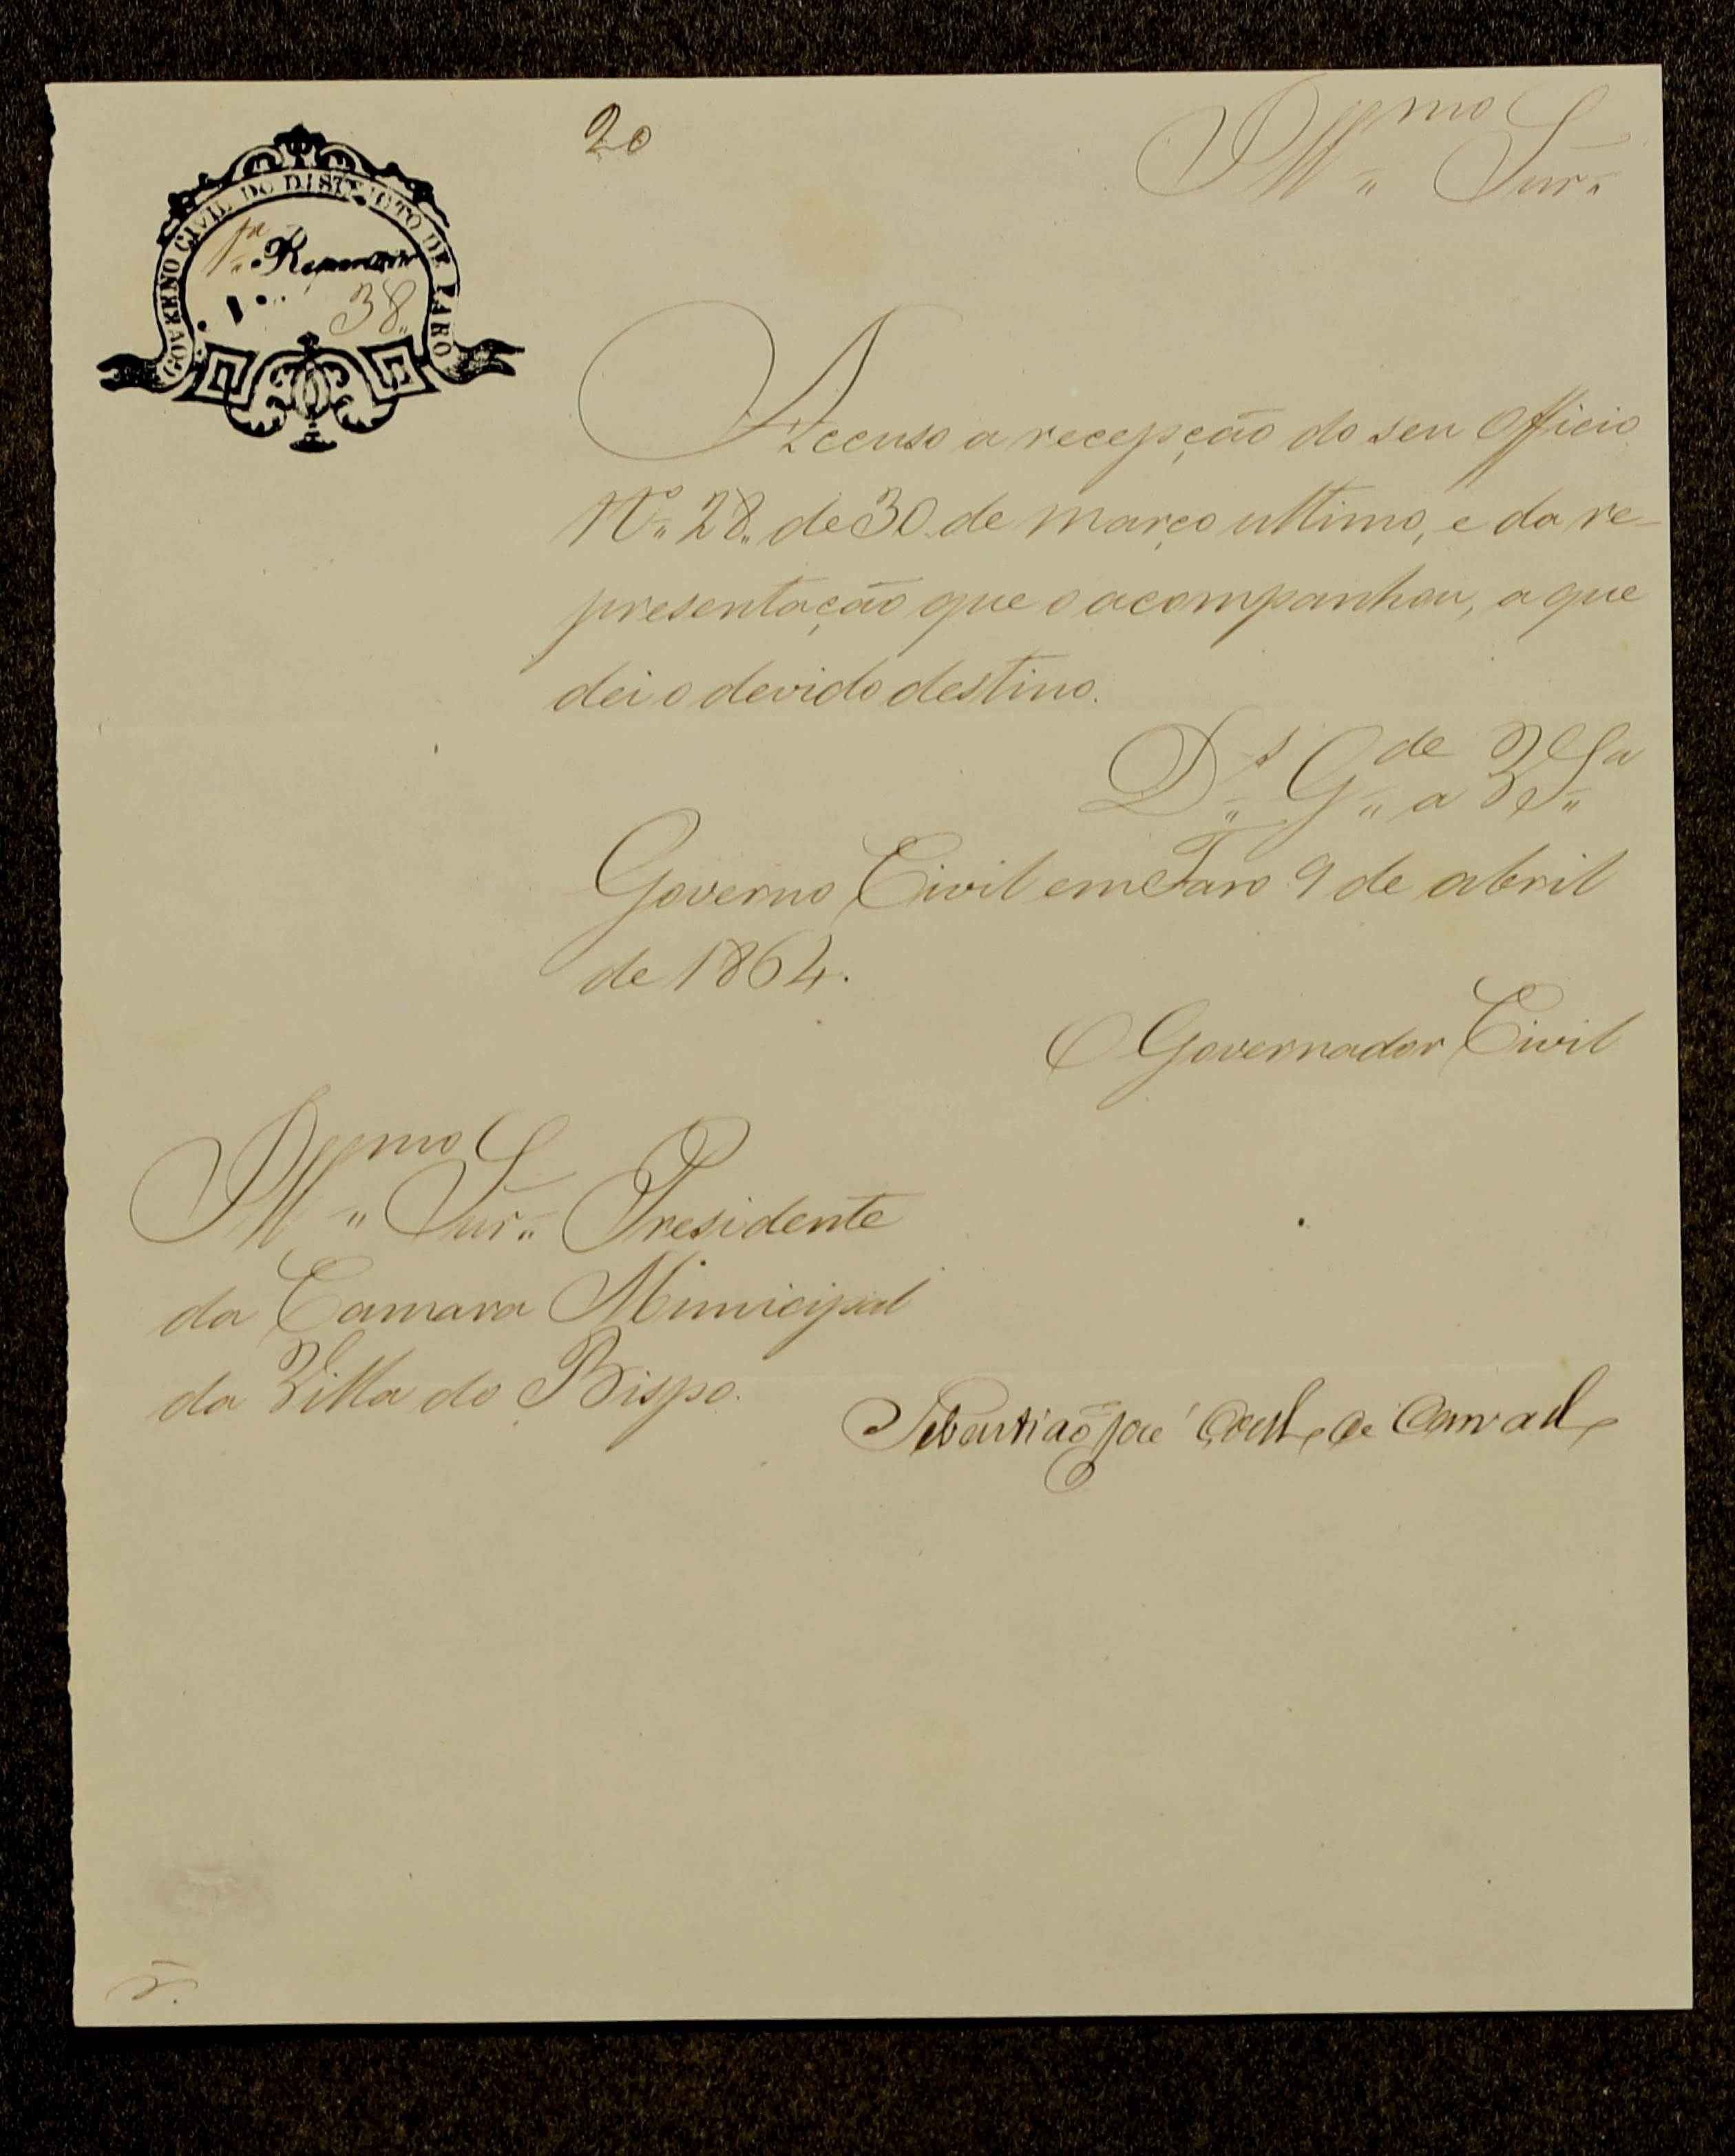 20
Illmo Snr.
GOVERNO CIVIL DO DISTRICTO DE FARO
1ª Repartição
N.º 38
Accuso a recepção do seu Officio
Nº 28 de 30 de março ultimo, e da re-
presentação que o acompanhou, a que
dei o devido destino.
Ds. Gde. a V. Sa.
Governo Civil em Faro 9 de abril
de 1864.
O Governador Civil
Illmo Snr. Presidente
da Camara Municipal
da Villa do Bispo.
Sebastião José Coelho de Carvalho